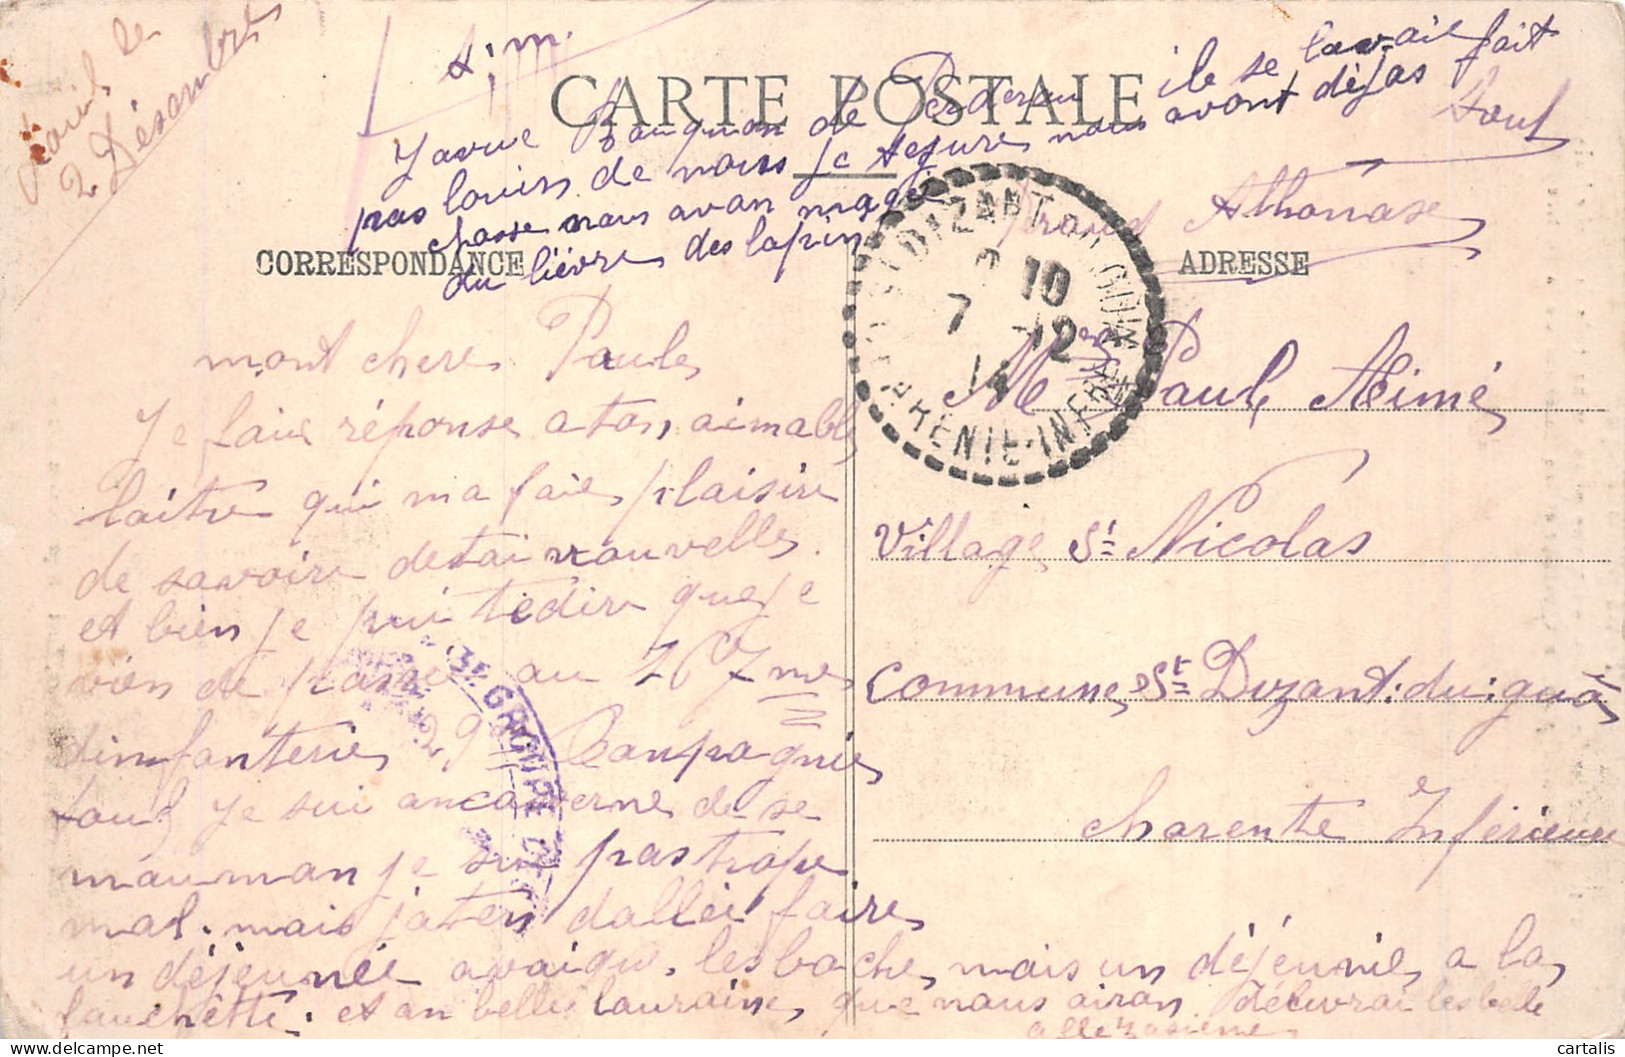 2 Désambre
A; m.
CARTE POSTALE
Javue Bouquon de Perderau ile se lavaie fait
pas louin de nous je tejure nous avont déjas
chasse nous avon magé
du lièvre des lapin
Athonase
CORRESPONDANCE
ADRESSE
ST DIZANT DU GUA
10
7 -12
14
CHARENTE-INFRE
mont chere Paule
Je faie réponse a ton aimable
laitre qui ma faie plaisire
de savoire detai nouvelles.
et bien je pui te dire que je
vien de passe au 267me
dinfanterie 29e Compagnie
toul je sui ancaserne de se
mauman je sui pas trope
mal. mais jaten dallei faire
un déjeunée avaique lesboche, mais un déjeunie a la
fauchette. et an belle lauraine que nous airon délivrai
Mer Paul Aimé
Village St Nicolas
Commune St Dizant: du: gua
Charente Inférieure
3E GROUPE DE
cartalis